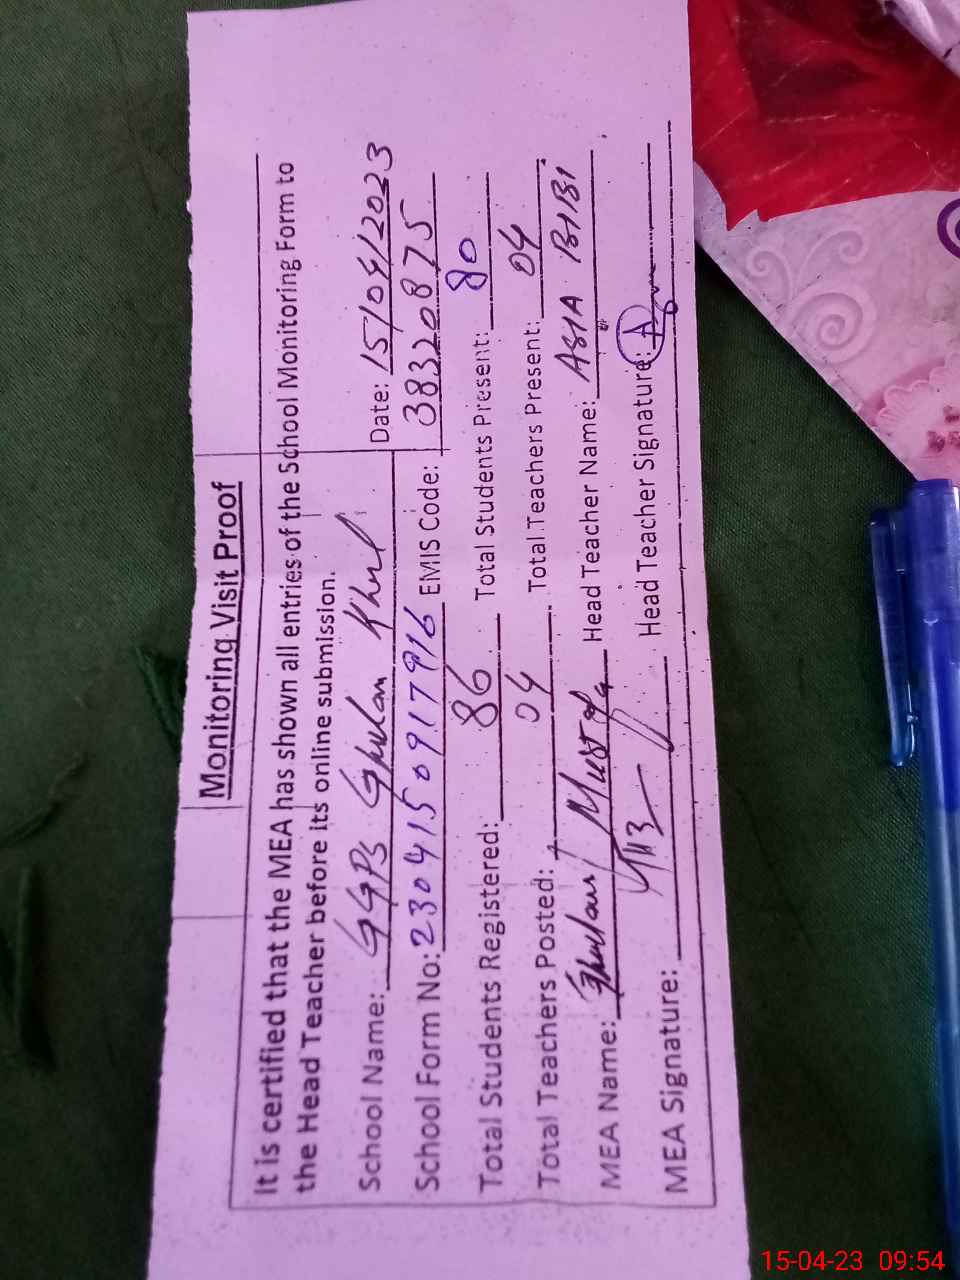 Monitoring Visit Proof
It is certified that the MEA has shown all entries of the School Monitoring Form to
the Head Teacher before its online submission.
School Name: GGPS Ghulam Khel Date: 15/04/2023
School Form No: 2304150917916 EMIS Code: 38320875
Total Students Registered: 86 Total Students Present: 80
Total Teachers Posted: 04 Total Teachers Present: 04
MEA Name: Ghulam Mustafa Head Teacher Name: ASIA BIBI
MEA Signature: Head Teacher Signature:
15-04-23 09:54